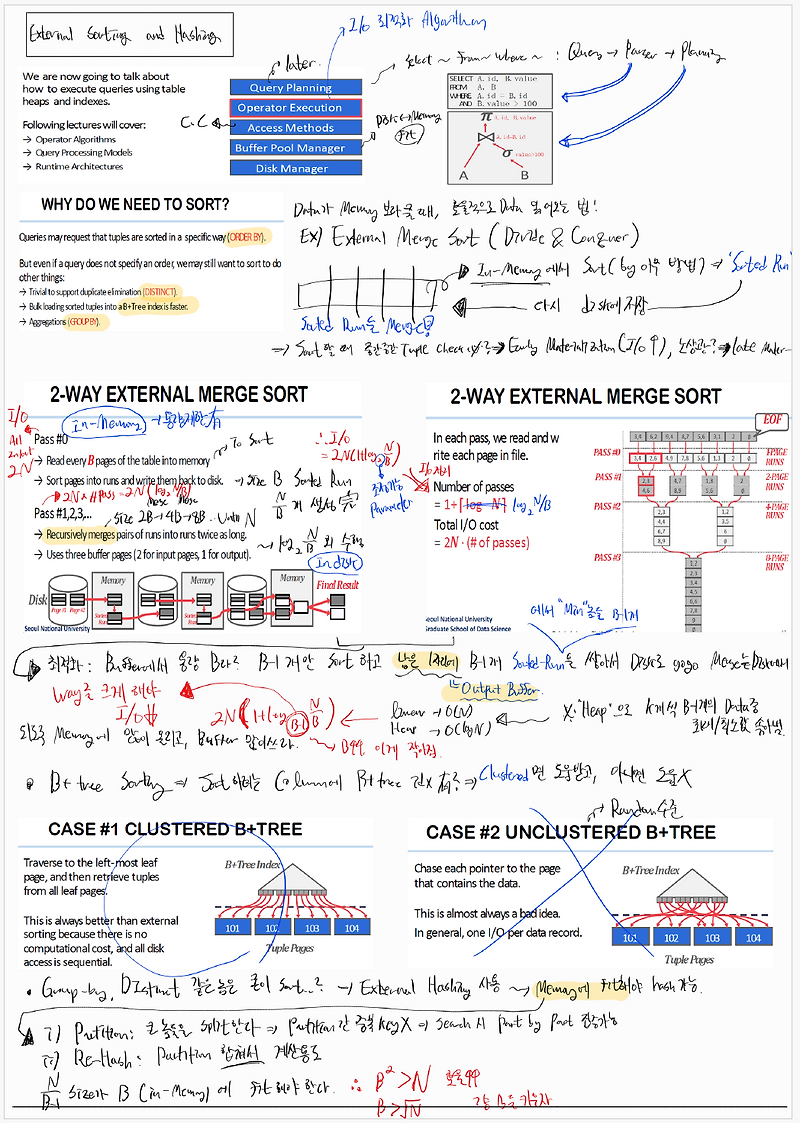 External Sorting and Hashing
I/O 최적화 Algorithm
later.
Select ~ From ~ where ~ : Query → Parser → Planning
We are now going to talk about
how to execute queries using table
heaps and indexes.
Following lectures will cover:
→ Operator Algorithms
→ Query Processing Models
→ Runtime Architectures
Query Planning
Operator Execution
Access Methods
Buffer Pool Manager
Disk Manager
C.C
Disk ↔ Memory
SELECT A.id, B.value
FROM A, B
WHERE A.id = B.id
AND B.value > 100
π A.id, B.value
⋈ A.id=B.id
σ value>100
A
B
WHY DO WE NEED TO SORT?
Queries may request that tuples are sorted in a specific way (ORDER BY).
But even if a query does not specify an order, we may still want to sort to do
other things:
→ Trivial to support duplicate elimination (DISTINCT).
→ Bulk loading sorted tuples into a B+Tree index is faster.
→ Aggregations (GROUP BY).
Data가 Memory 보다 클 때, 효율적으로 Data 읽어오는 법!
EX) External Merge Sort (Divide & Conquer)
In-Memory에서 Sort (by 아무 방법) → "Sorted Run"
다시 disk에 저장
Sorted Run을 Merge
⇒ Sort할 때 중간중간 Tuple check
2-WAY EXTERNAL MERGE SORT
In-Memory
I/O
2N
Pass #0
→ Read every B pages of the table into memory
To Sort
→ Sort pages into runs and write them back to disk.
→ size B Sorted Run
Pass #1,2,3,...
Size 2B → 4B → 8B .. Until N
→ Recursively merges pairs of runs into runs twice as long.
→ Uses three buffer pages (2 for input pages, 1 for output).
In disk
∴ I/O
Parameter
Disk
Page #1 Page #2
Memory
Sorted Run
Memory
Memory
Final Result
Seoul National University
2-WAY EXTERNAL MERGE SORT
In each pass, we read and w
rite each page in file.
Number of passes
= 1+⌈log₂ N⌉ log₂ N/B
Total I/O cost
= 2N · (# of passes)
EOF
3,4 6,2 9,4 8,7 5,6 3,1 2 ∅
PASS #0
3,4 2,6 4,9 7,8 5,6 1,3 2 ∅
1-PAGE
RUNS
PASS #1
2,3 4,7 1,3 2
4,6 8,9 5,6 ∅
2-PAGE
RUNS
PASS #2
2,3 1,2
4,4 3,5
6,7 6
8,9 ∅
4-PAGE
RUNS
PASS #3
1,2
2,3
3,4
4,5
6,6
7,8
9
∅
8-PAGE
RUNS
eoul National University
Graduate School of Data Science
에서 "Min"
최적화 : Buffer에서 용량 B라? B-1개만 Sort 하고 남은 1자리에 B-1개 Sorted-Run을
Output Buffer.
way를 크게 해야
I/O↓
2N(1+log B-1 N/B)
linear → O(N)
Heap → O(logN)
되도록 Memory에 많이 올리고, Buffer 많이쓰라.
• B+ tree Sorting ⇒ Sort 하려는 Column에 B+tree
Clustered면 도움받고, 아니면 도움X
Random 수준
CASE #1 CLUSTERED B+TREE
Traverse to the left-most leaf
page, and then retrieve tuples
from all leaf pages.
This is always better than external
sorting because there is no
computational cost, and all disk
access is sequential.
B+Tree Index
101 102 103 104
Tuple Pages
CASE #2 UNCLUSTERED B+TREE
Chase each pointer to the page
that contains the data.
This is almost always a bad idea.
In general, one I/O per data record.
B+Tree Index
101 102 103 104
Tuple Pages
• Group-by, Distinct 같은놈은 굳이 Sort..? → External Hashing 사용 ~→ Memory에 fit해야 hash가능.
i) Partition: 큰 놈을 split한다 ⇒ Partition간 중복 key X ⇒ search 시 Part by Part 접근가능
ii) Re-Hash : Partition 합쳐서 계산용도
N/B-1 size가 B (in-Memory) 에 fit 해야 한다. ∴ B² > N
B > √N